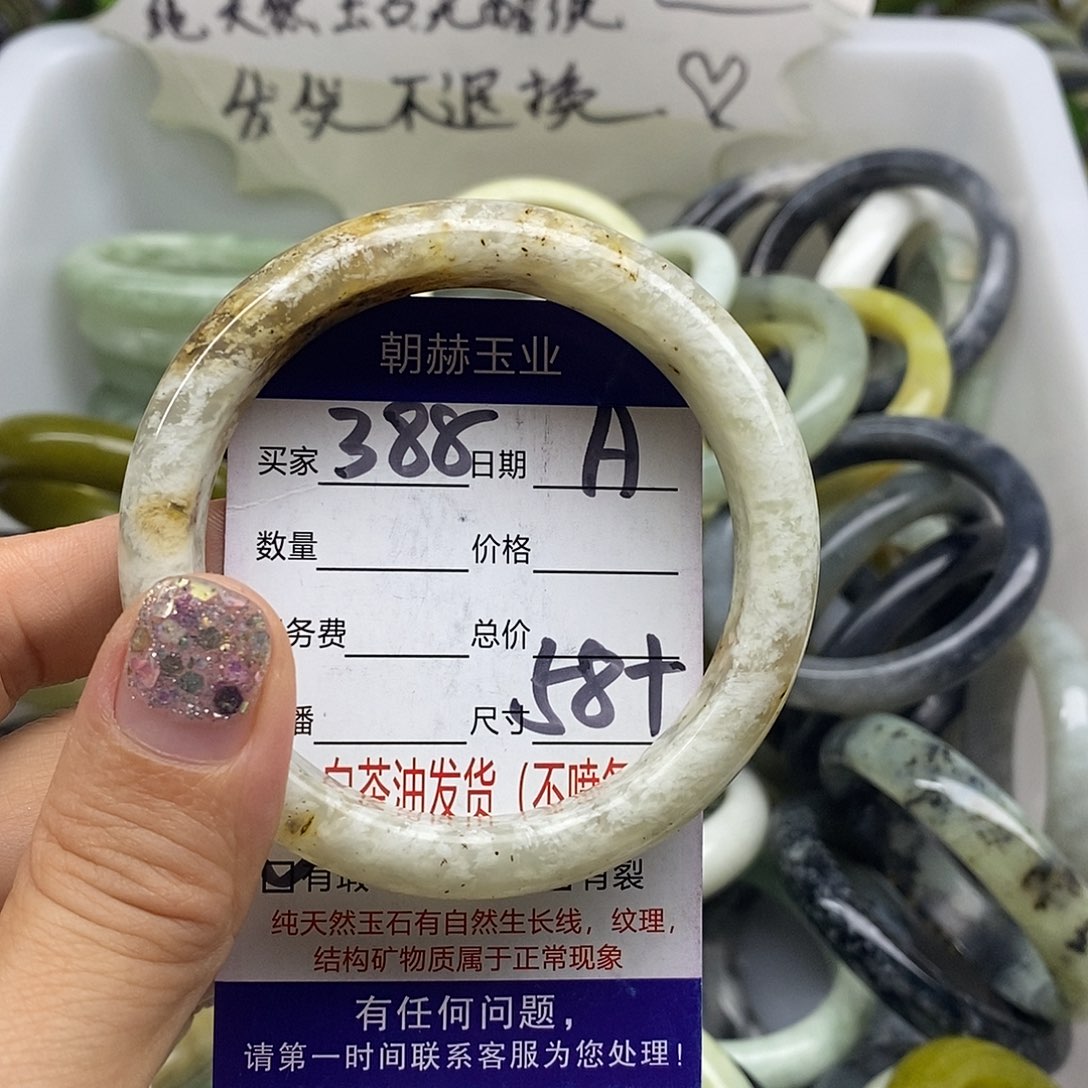 纯天然玉石无酸洗
售出不退换 ♡
朝赫玉业
买家 388 日期 A
数量 价格
务费 总价
播 尺寸 58+
白茶油发货（不喷
有瑕 有裂
纯天然玉石有自然生长线，纹理，
结构矿物质属于正常现象
有任何问题，
请第一时间联系客服为您处理！